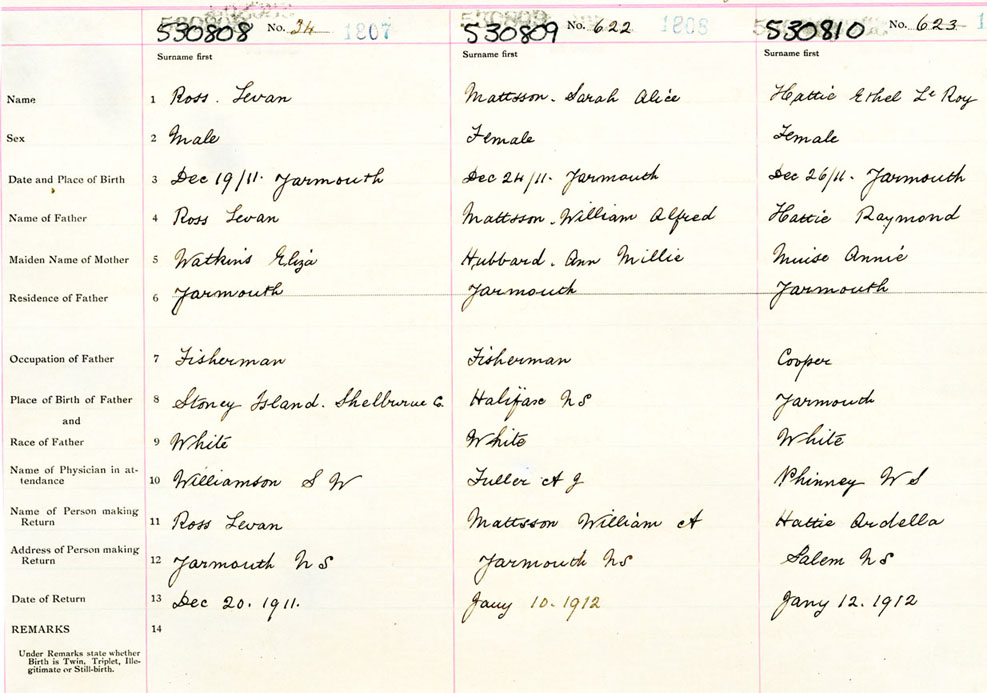 530808 No. 24 1807 530809 No. 622 1808 530810 No. 623 1
Surname first Surname first Surname first
Name 1 Ross. Levan Mattsson. Sarah Alice Hattie Ethel Le Roy
Sex 2 Male Female Female
Date and Place of Birth 3 Dec 19/11. Yarmouth Dec 24/11. Yarmouth Dec 26/11. Yarmouth
Name of Father 4 Ross Levan Mattsson. William Alfred Hattie Raymond
Maiden Name of Mother 5 Watkins Eliza Hubbard. Ann Millie Muise Annie
Residence of Father 6 Yarmouth Yarmouth Yarmouth
Occupation of Father 7 Fisherman Fisherman Cooper
Place of Birth of Father 8 Stoney Island. Shelburne Co. Halifax NS Yarmouth
and
Race of Father 9 White White White
Name of Physician in at-
tendance 10 Williamson S W Fuller A J Phinney W S
Name of Person making
Return 11 Ross Levan Mattsson William A Hattie Ardella
Address of Person making
Return 12 Yarmouth N S Yarmouth NS Salem NS
Date of Return 13 Dec 20. 1911. Jany 10. 1912 Jany 12. 1912
REMARKS 14
Under Remarks state whether
Birth is Twin, Triplet, Ille-
gitimate or Still-birth.